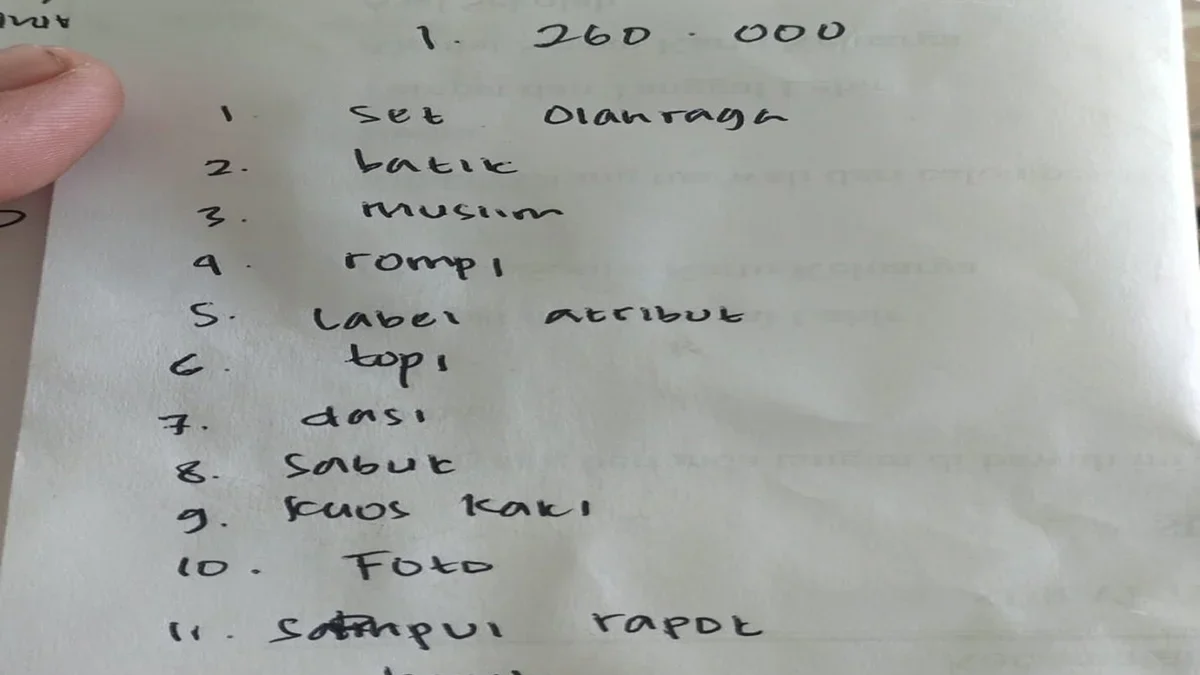 1. 260.000
1. set olahraga
2. batik
3. muslim
4. rompi
5. Label atribut
6. topi
7. dasi
8. Sabuk
9. kaos kaki
10. Foto
11. Sampul rapot